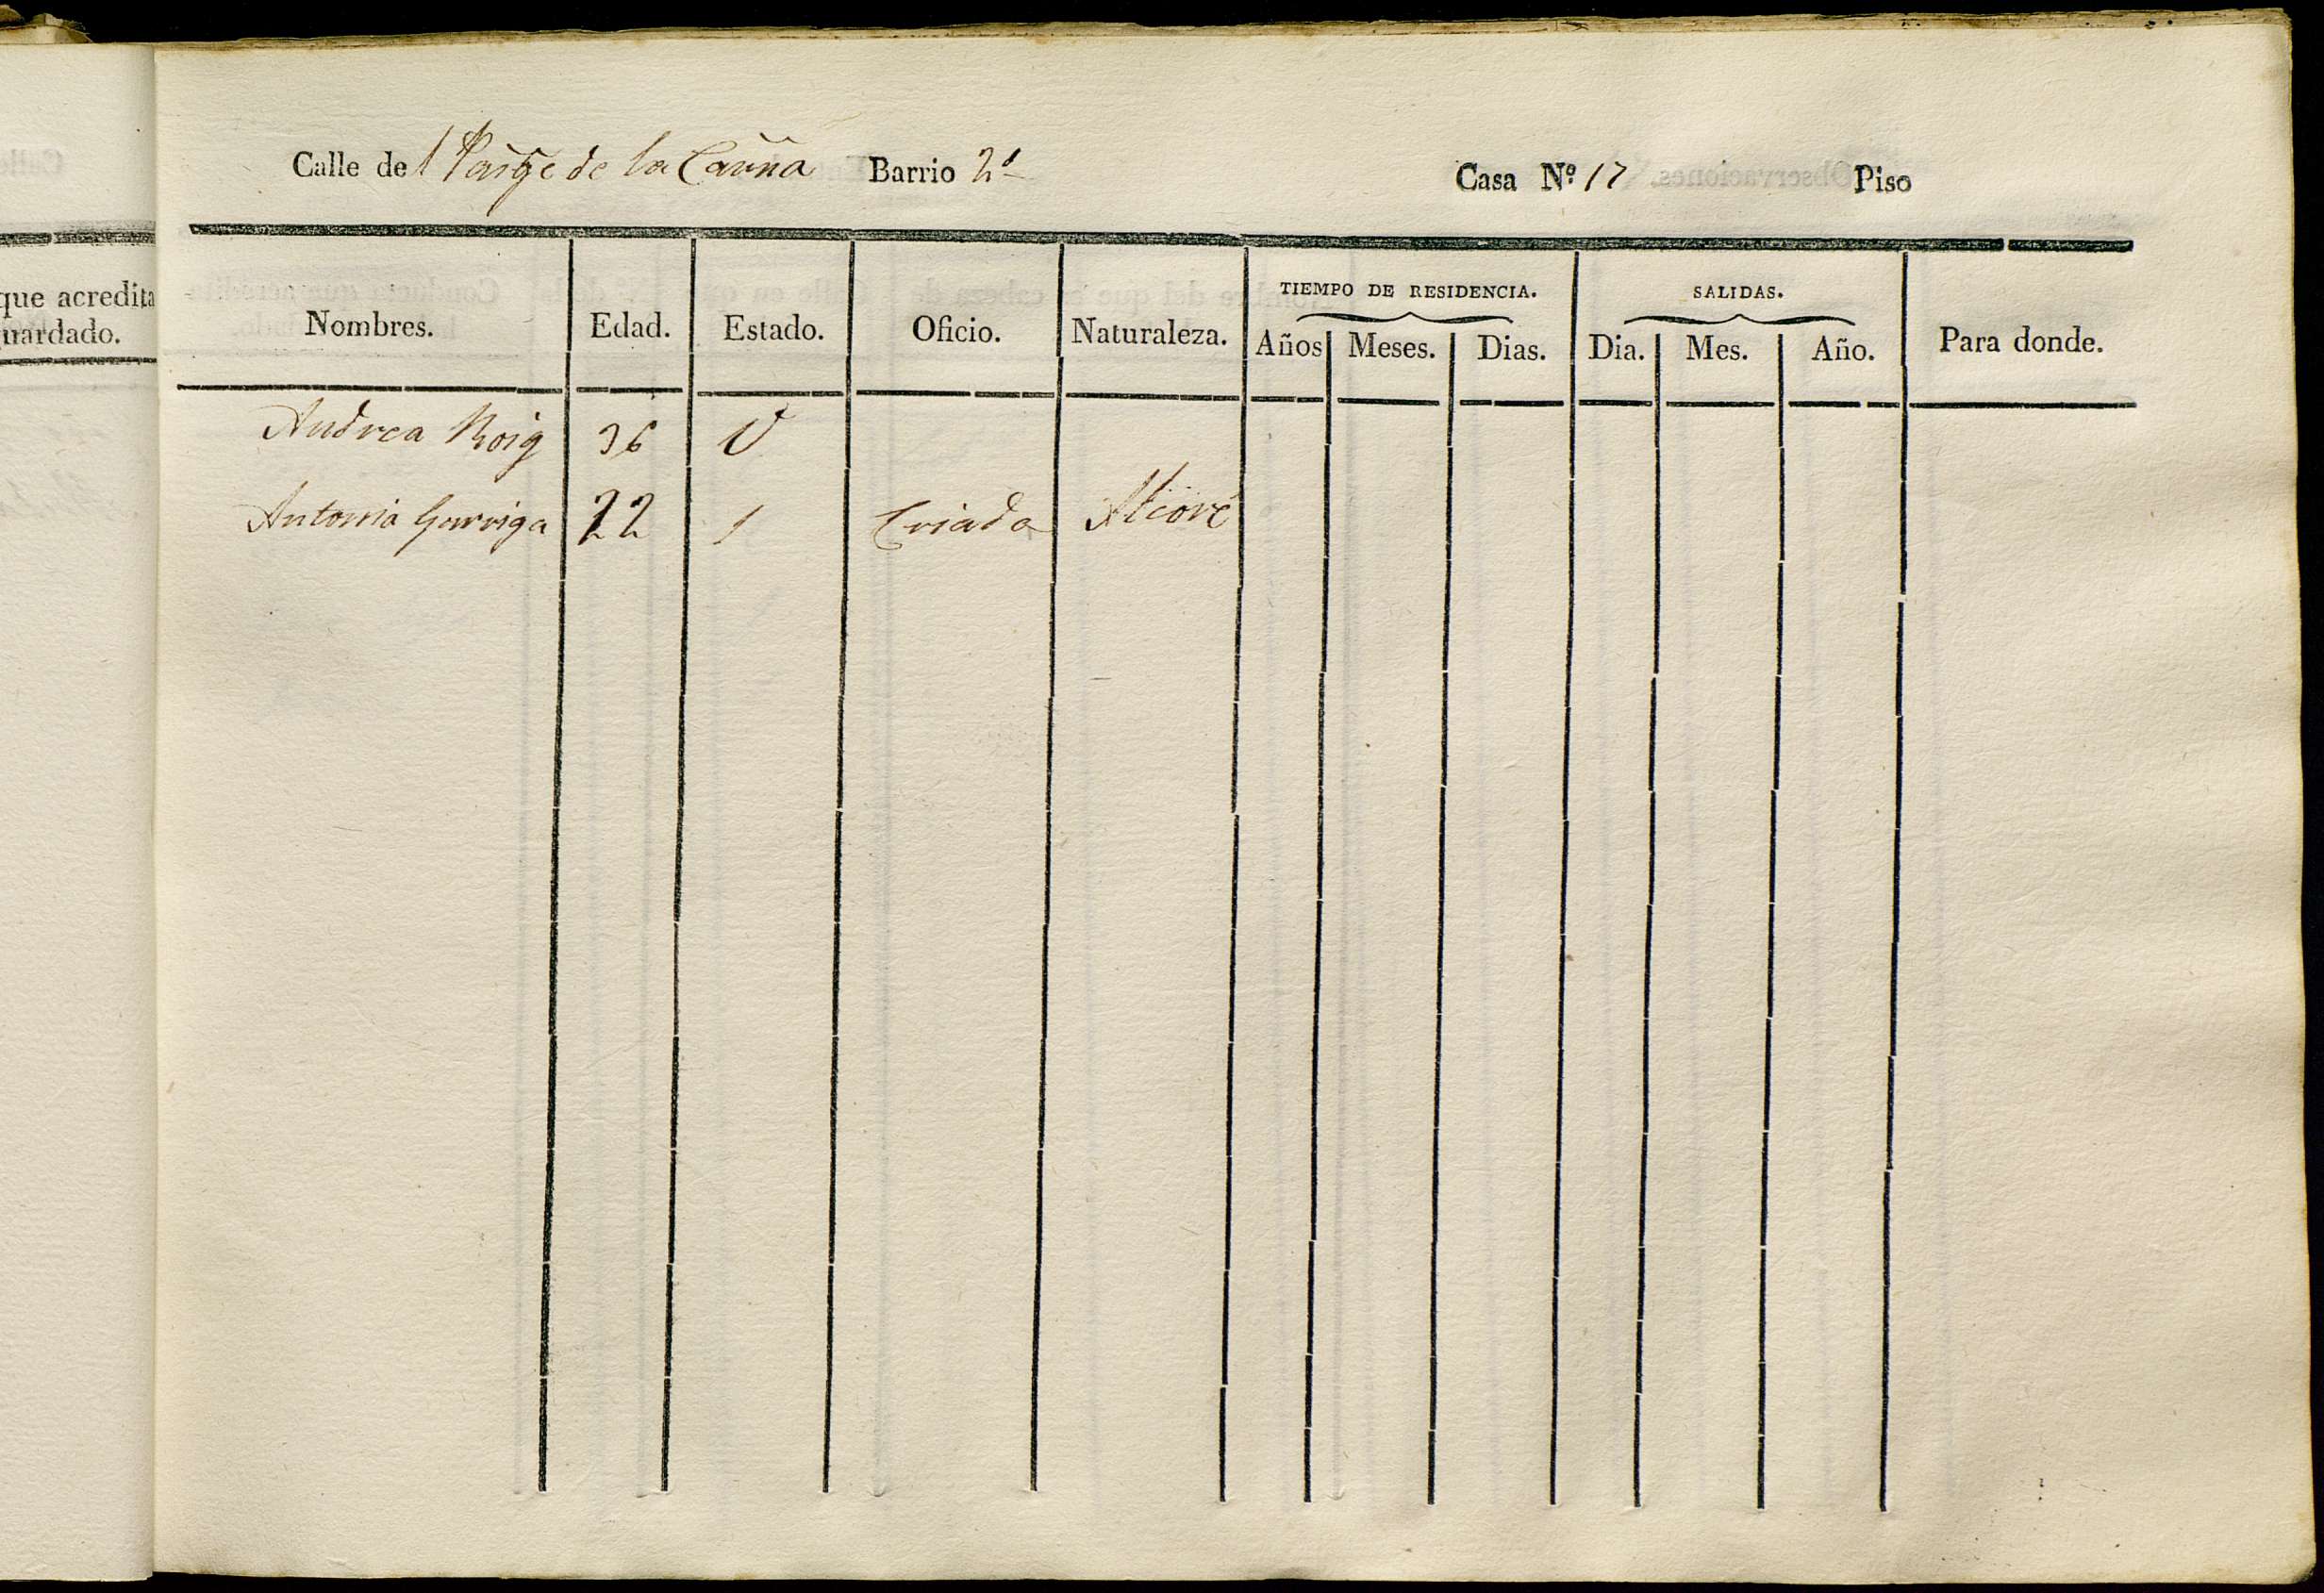 Calle del Pasge de la Cauña Barrio 2º Casa Nº 17 Piso
que acredita
uardado.
Nombres. Edad. Estado. Oficio. Naturaleza. TIEMPO DE RESIDENCIA. SALIDAS. Para donde.
Años Meses. Dias. Dia. Mes. Año.
Andrea Roig 36 V
Antonia Garriga 22 S Criada